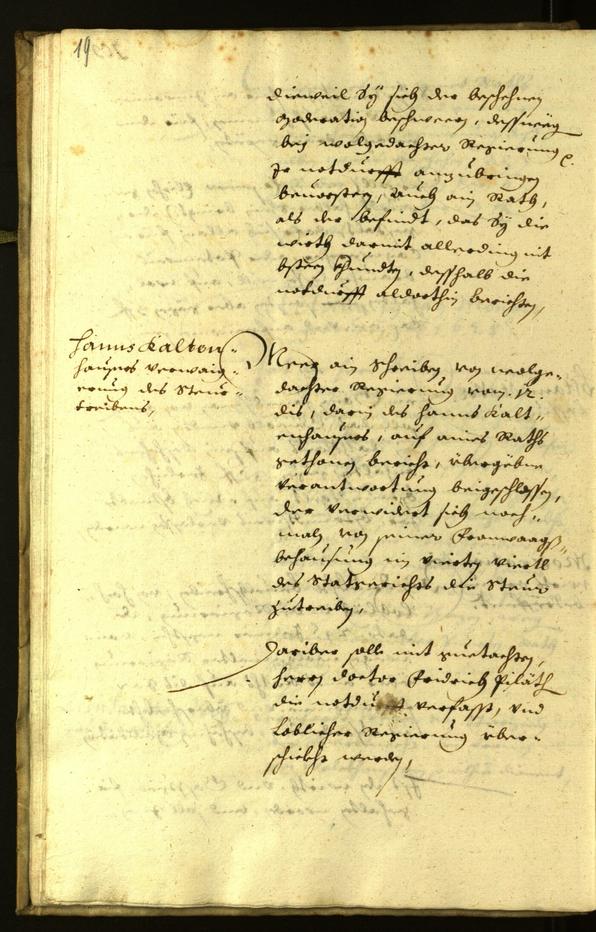 19
dieweil Sÿ sich der beschehnen
moderation beschweern, dessweeg
beÿ wolgedachter Regierung
Ir notdurfft anzubringen
beuorsteen, Auch ain Rath,
als der befindt, das Sÿ die
wirth darmit allerding nit
bsteen khundten, desshalb die
notdurfft aldorthin berichten,
Hanns Kalten-
hausers verwaig-
erung des Steur-
treibens,
Meer ain schreiben von wolge-
dachter Regierung vom 12.
dis, darin des Hanns Kalt-
enhausers, auf aines Raths
gethonen bericht, übergebne
verantwortung beigeschlossen,
der verwidert sich noch-
maln von seiner Fronwaags-
behausung im vierten viertl
des Statgerichts, die Steur
zutreiben,
Darüber solle mit guetachten,
herrn doctor Fridrich Piläth
die notdurft verfasst, vnd
Löblicher Regierung über-
schickht werden,